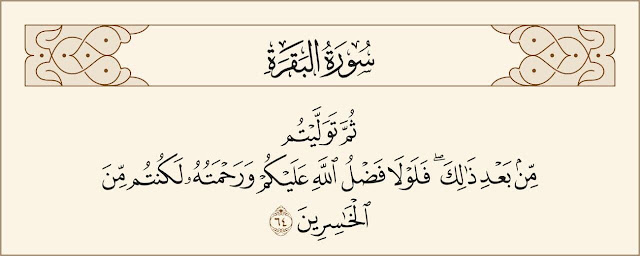 سُورَةُ البَقَرَةِ
ثُمَّ تَوَلَّيْتُم
مِّنۢ بَعْدِ ذَٰلِكَ ۖ فَلَوْلَا فَضْلُ ٱللَّهِ عَلَيْكُمْ وَرَحْمَتُهُۥ لَكُنتُم مِّنَ
ٱلْخَٰسِرِينَ ٦٤